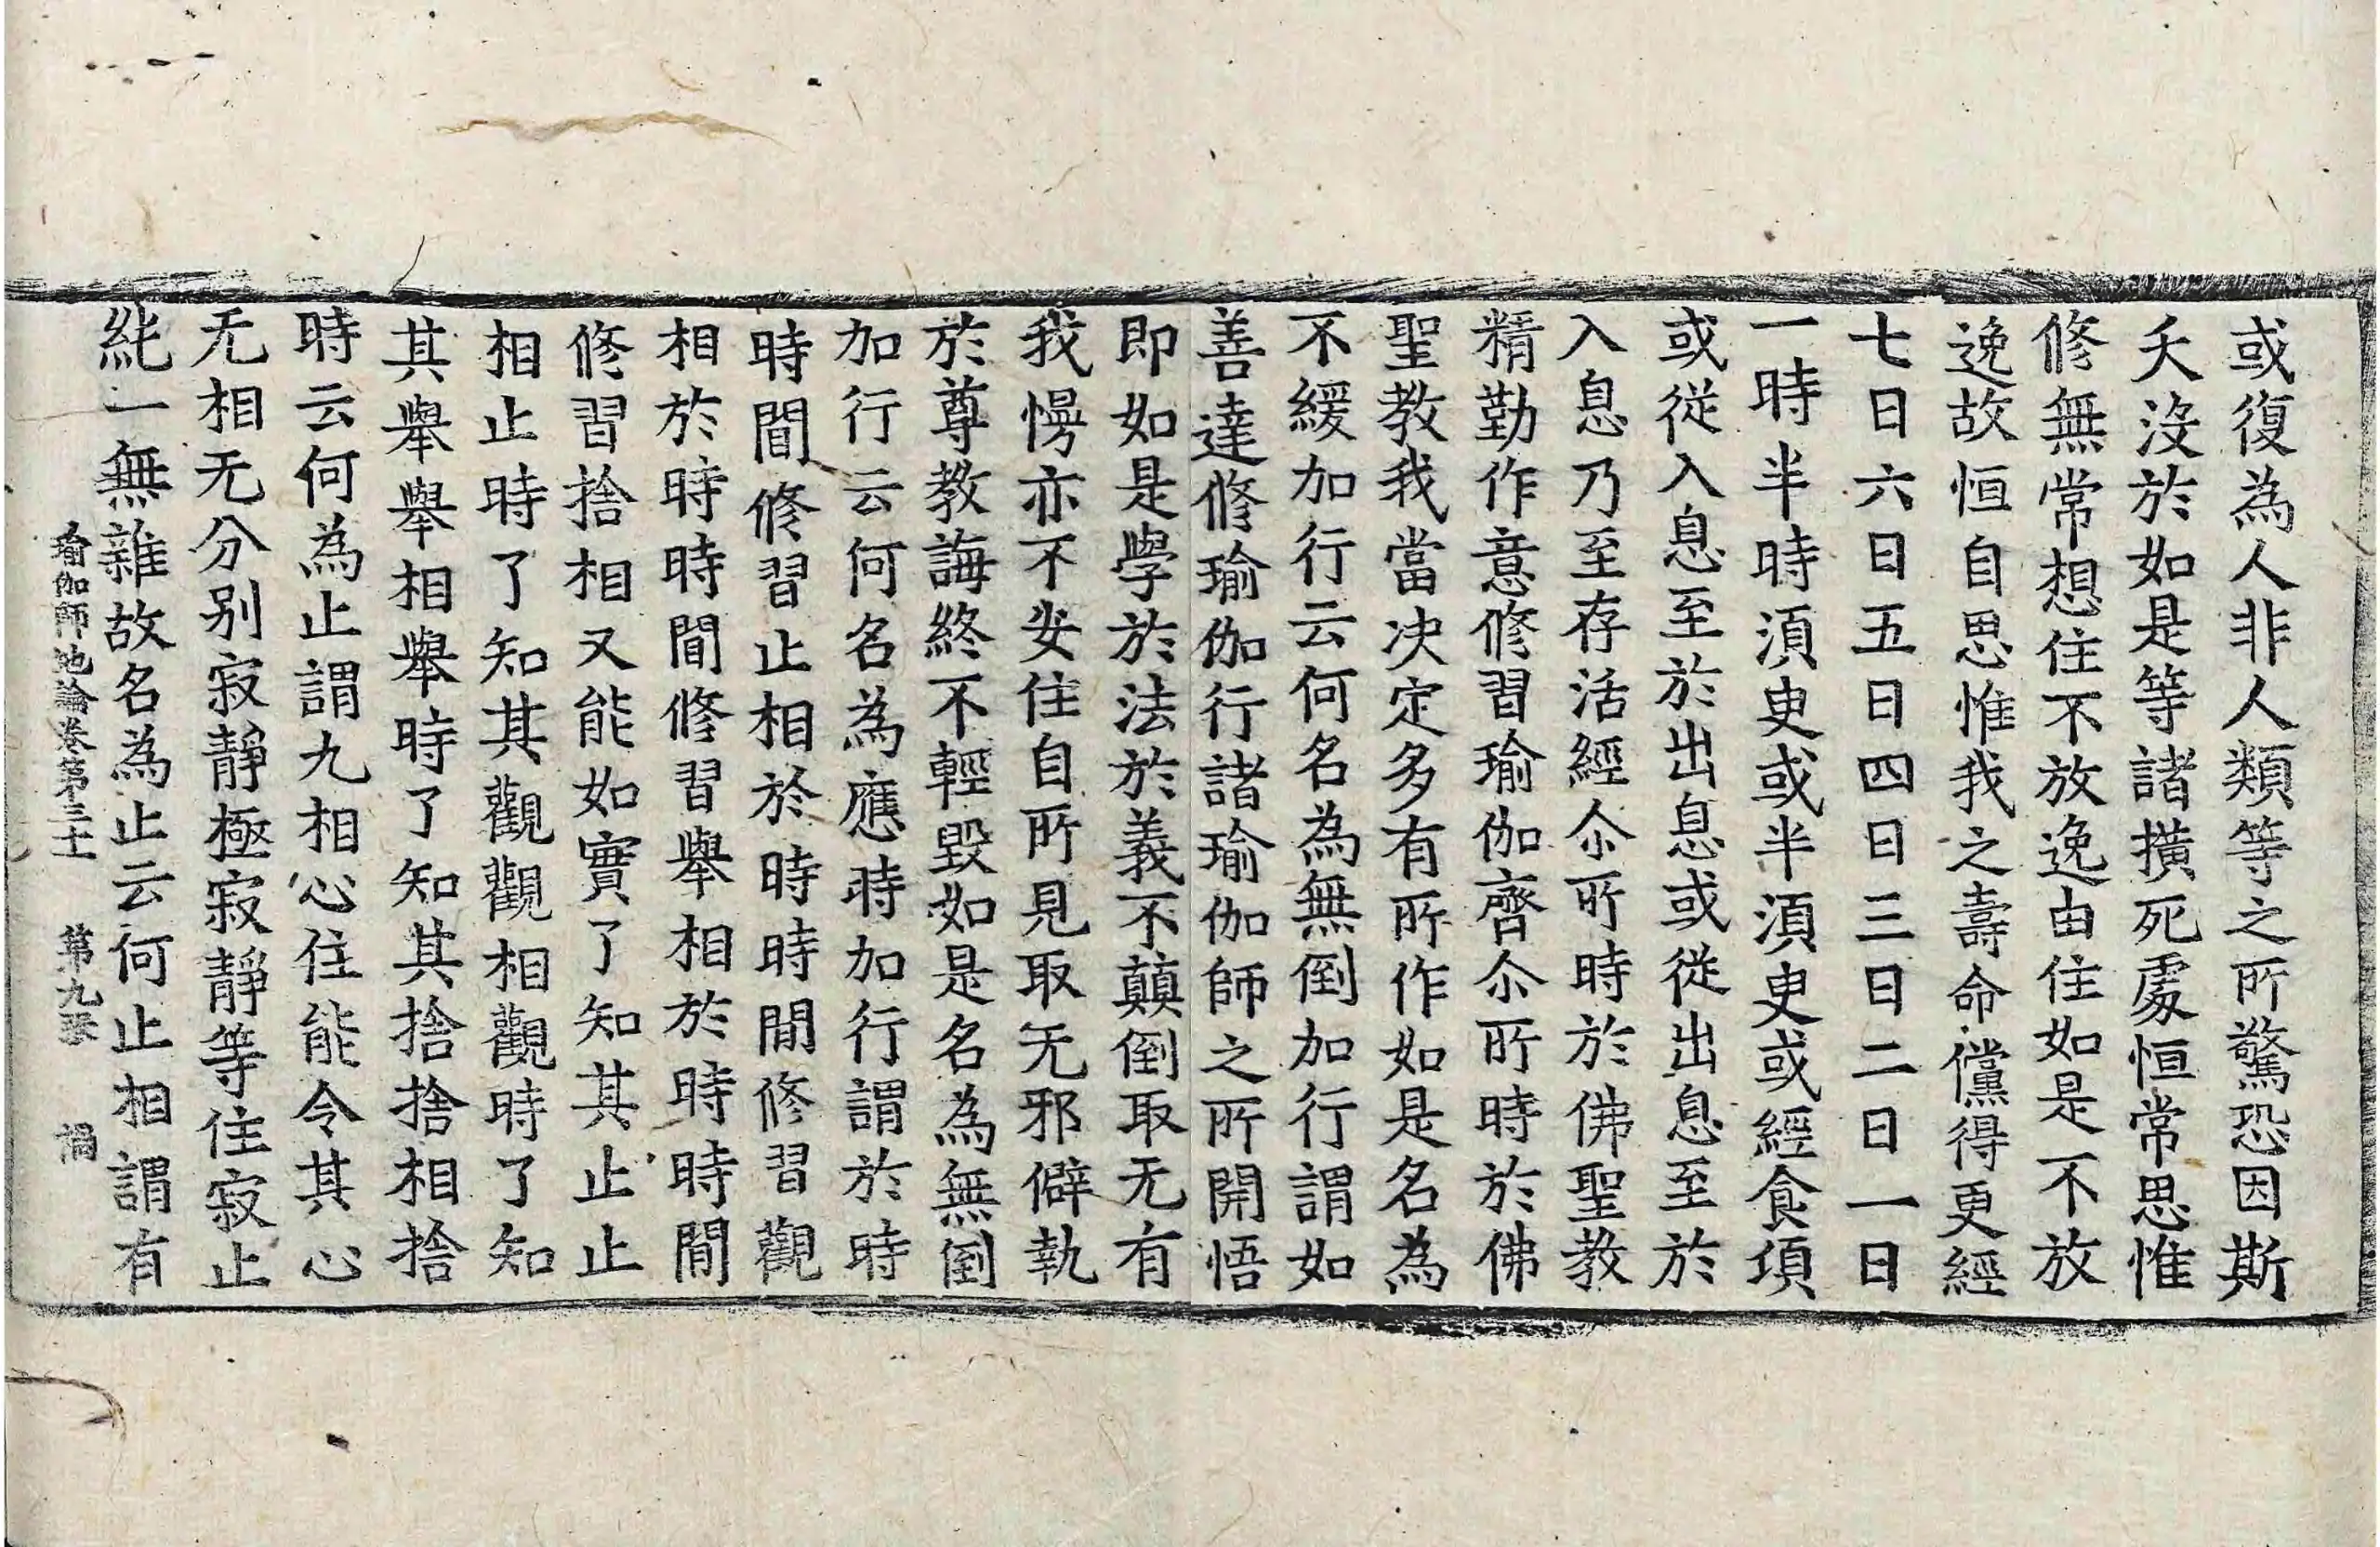 或復為人非人類等之所驚恐因斯
夭沒於如是等諸撗死處恒常思惟
修無常想住不放逸由住如是不放
逸故恒自思惟我之壽命儻得更經
七日六日五日四日三日二日一日
一時半時湏臾或半湏臾或經食項
或從入息至於出息或從出息至於
入息乃至存活經尒所時於佛聖教
精勤作意修習瑜伽齊尒所時於佛
聖教我當決定多有所作如是名為
不緩加行云何名為無倒加行謂如
善達修瑜伽行諸瑜伽師之所開悟
即如是學於法於義不顛倒取无有
我慢亦不安住自所見取无邪僻執
於尊教誨終不輕毀如是名為無倒
加行云何名為應時加行謂於時
時間修習止相於時時間修習觀
相於時時間修習舉相於時時間
修習捨相又能如實了知其止止
相止時了知其觀觀相觀時了知
其舉舉相舉時了知其捨捨相捨
時云何為止謂九相心住能令其心
无相无分別寂靜極寂靜等住寂止
純一無雜故名為止云何止相謂有
瑜伽師地論卷第三十一 第九張